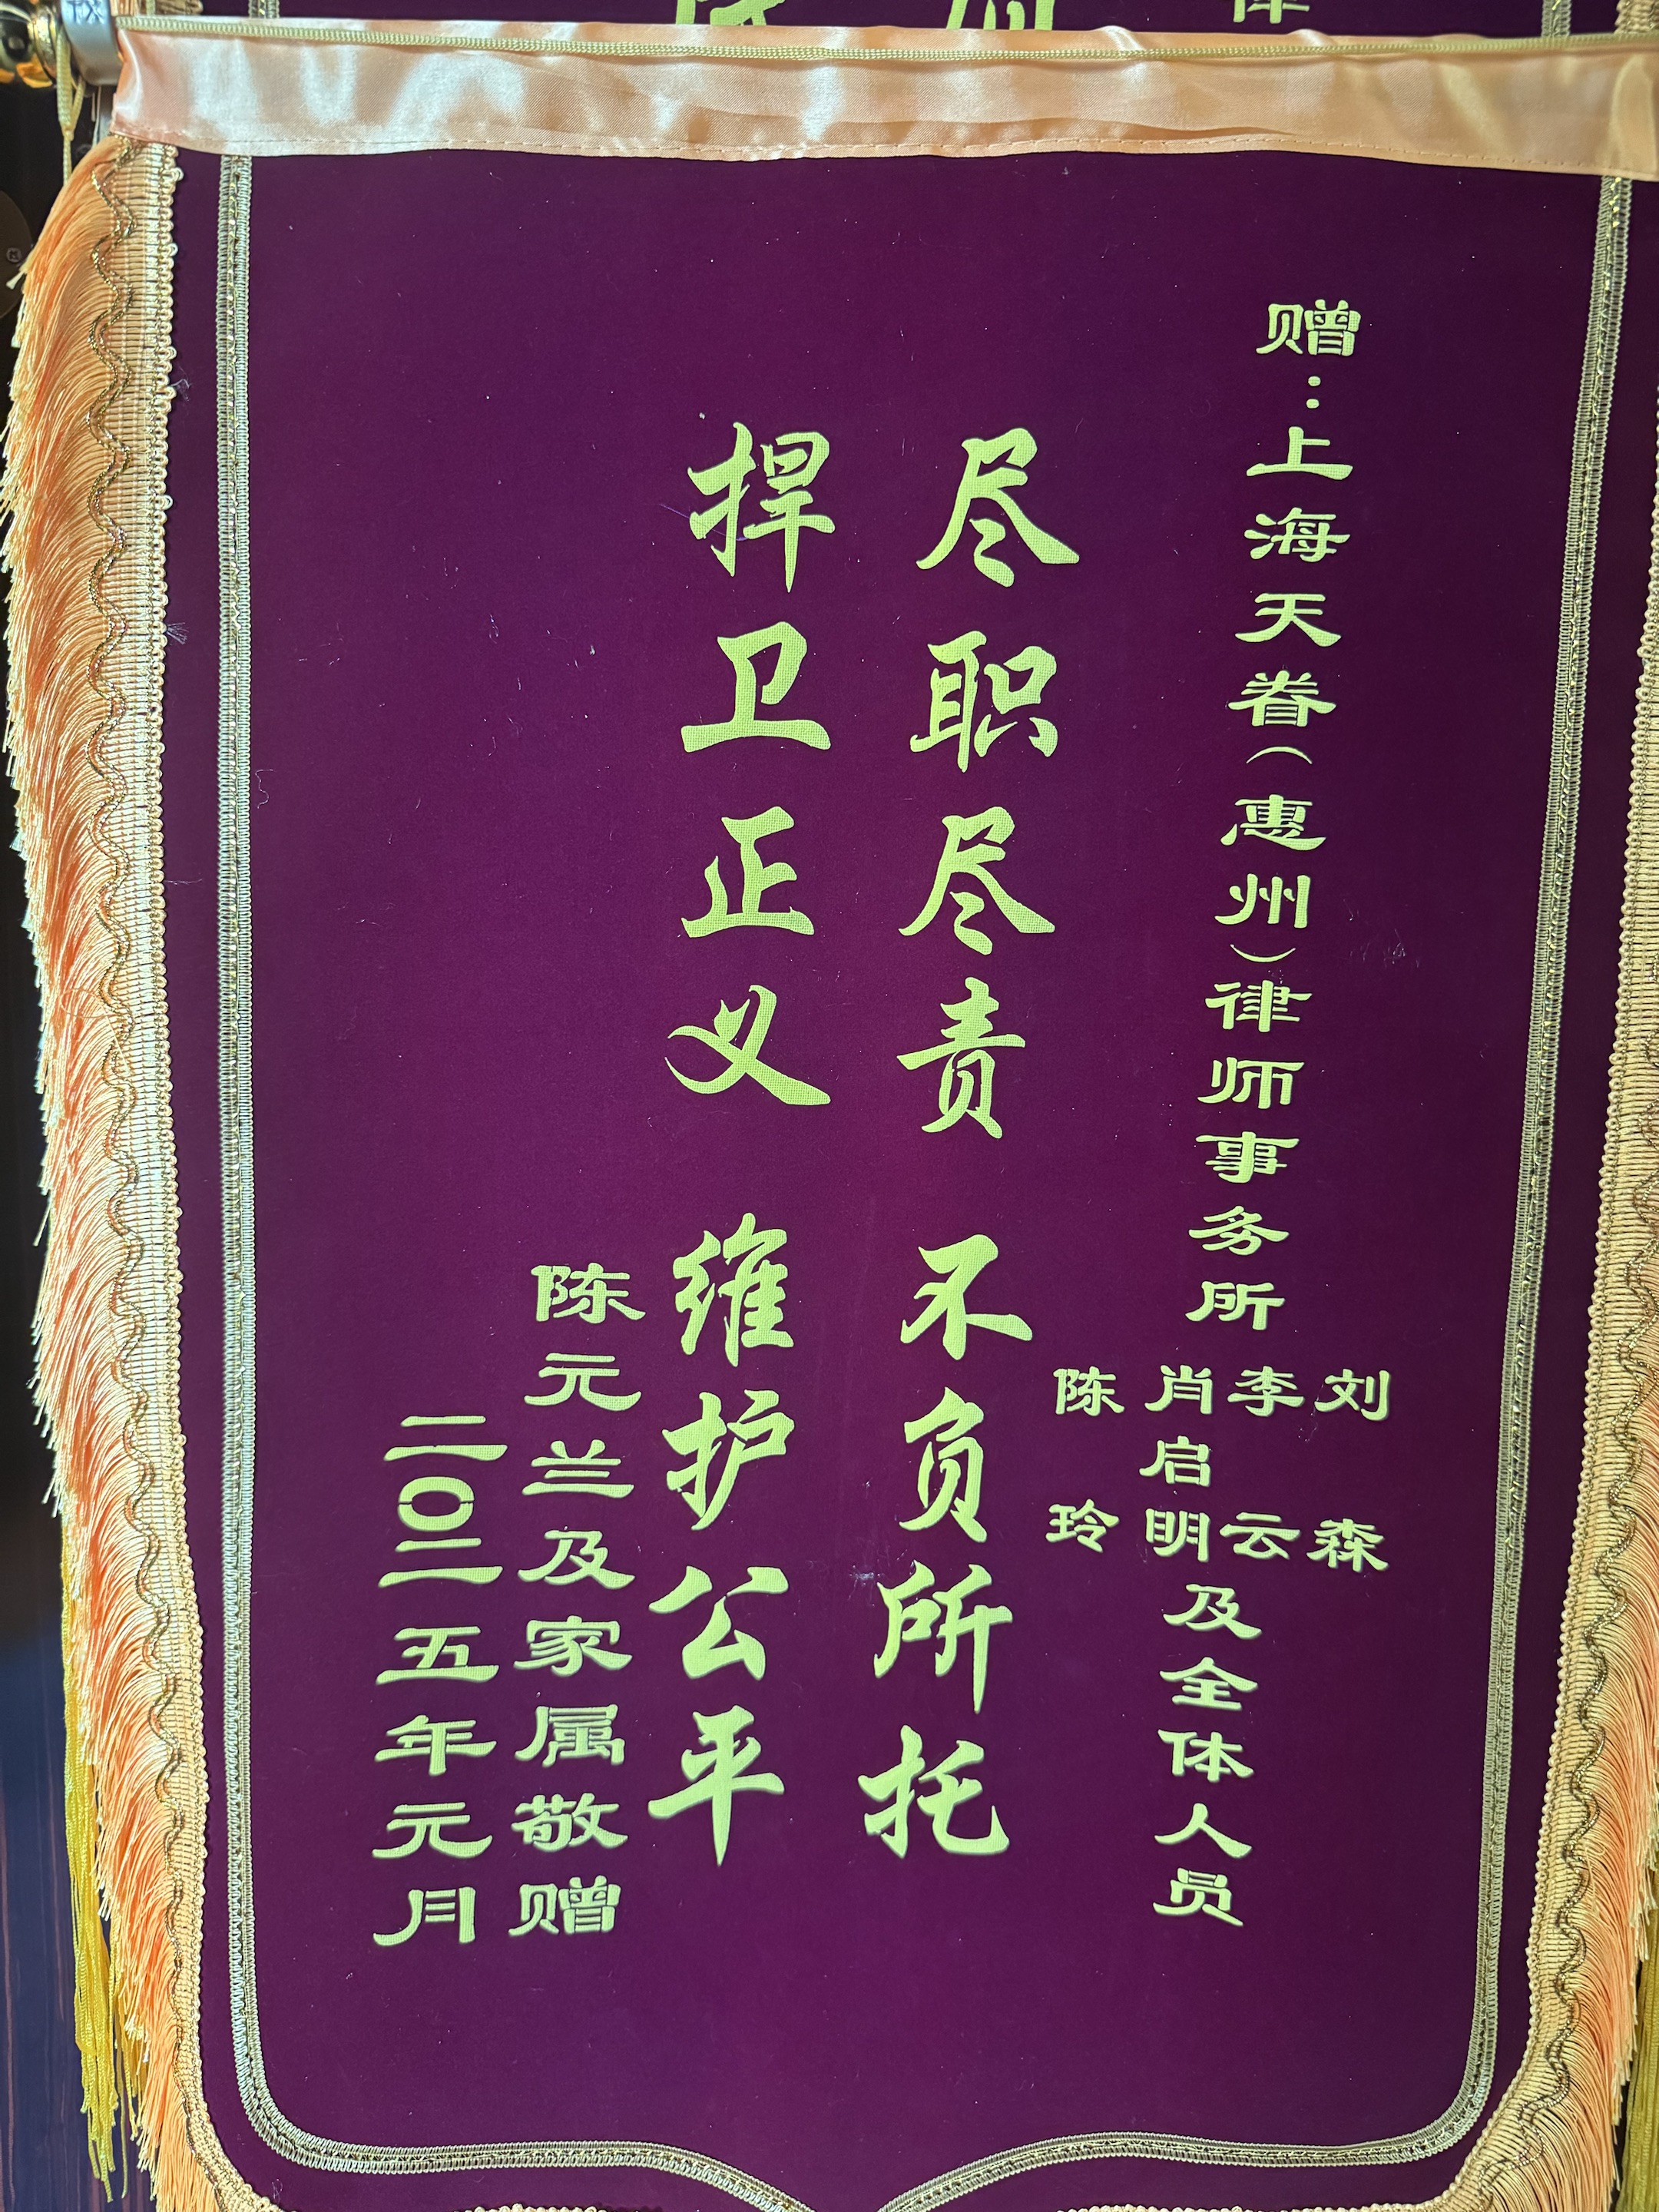 赠：上海天眷（惠州）律师事务所
刘森
李云
肖启明
陈玲
及全体人员
尽职尽责 不负所托
捍卫正义 维护公平
陈元兰及家属敬赠
二〇二五年元月
TX
律